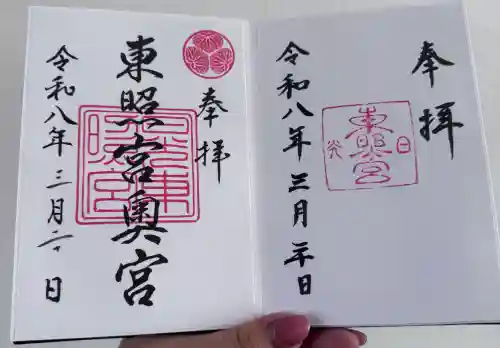 奉拝
東照宮奥宮
令和八年三月二十日
奉拝
東照宮
日光
令和八年三月二十日